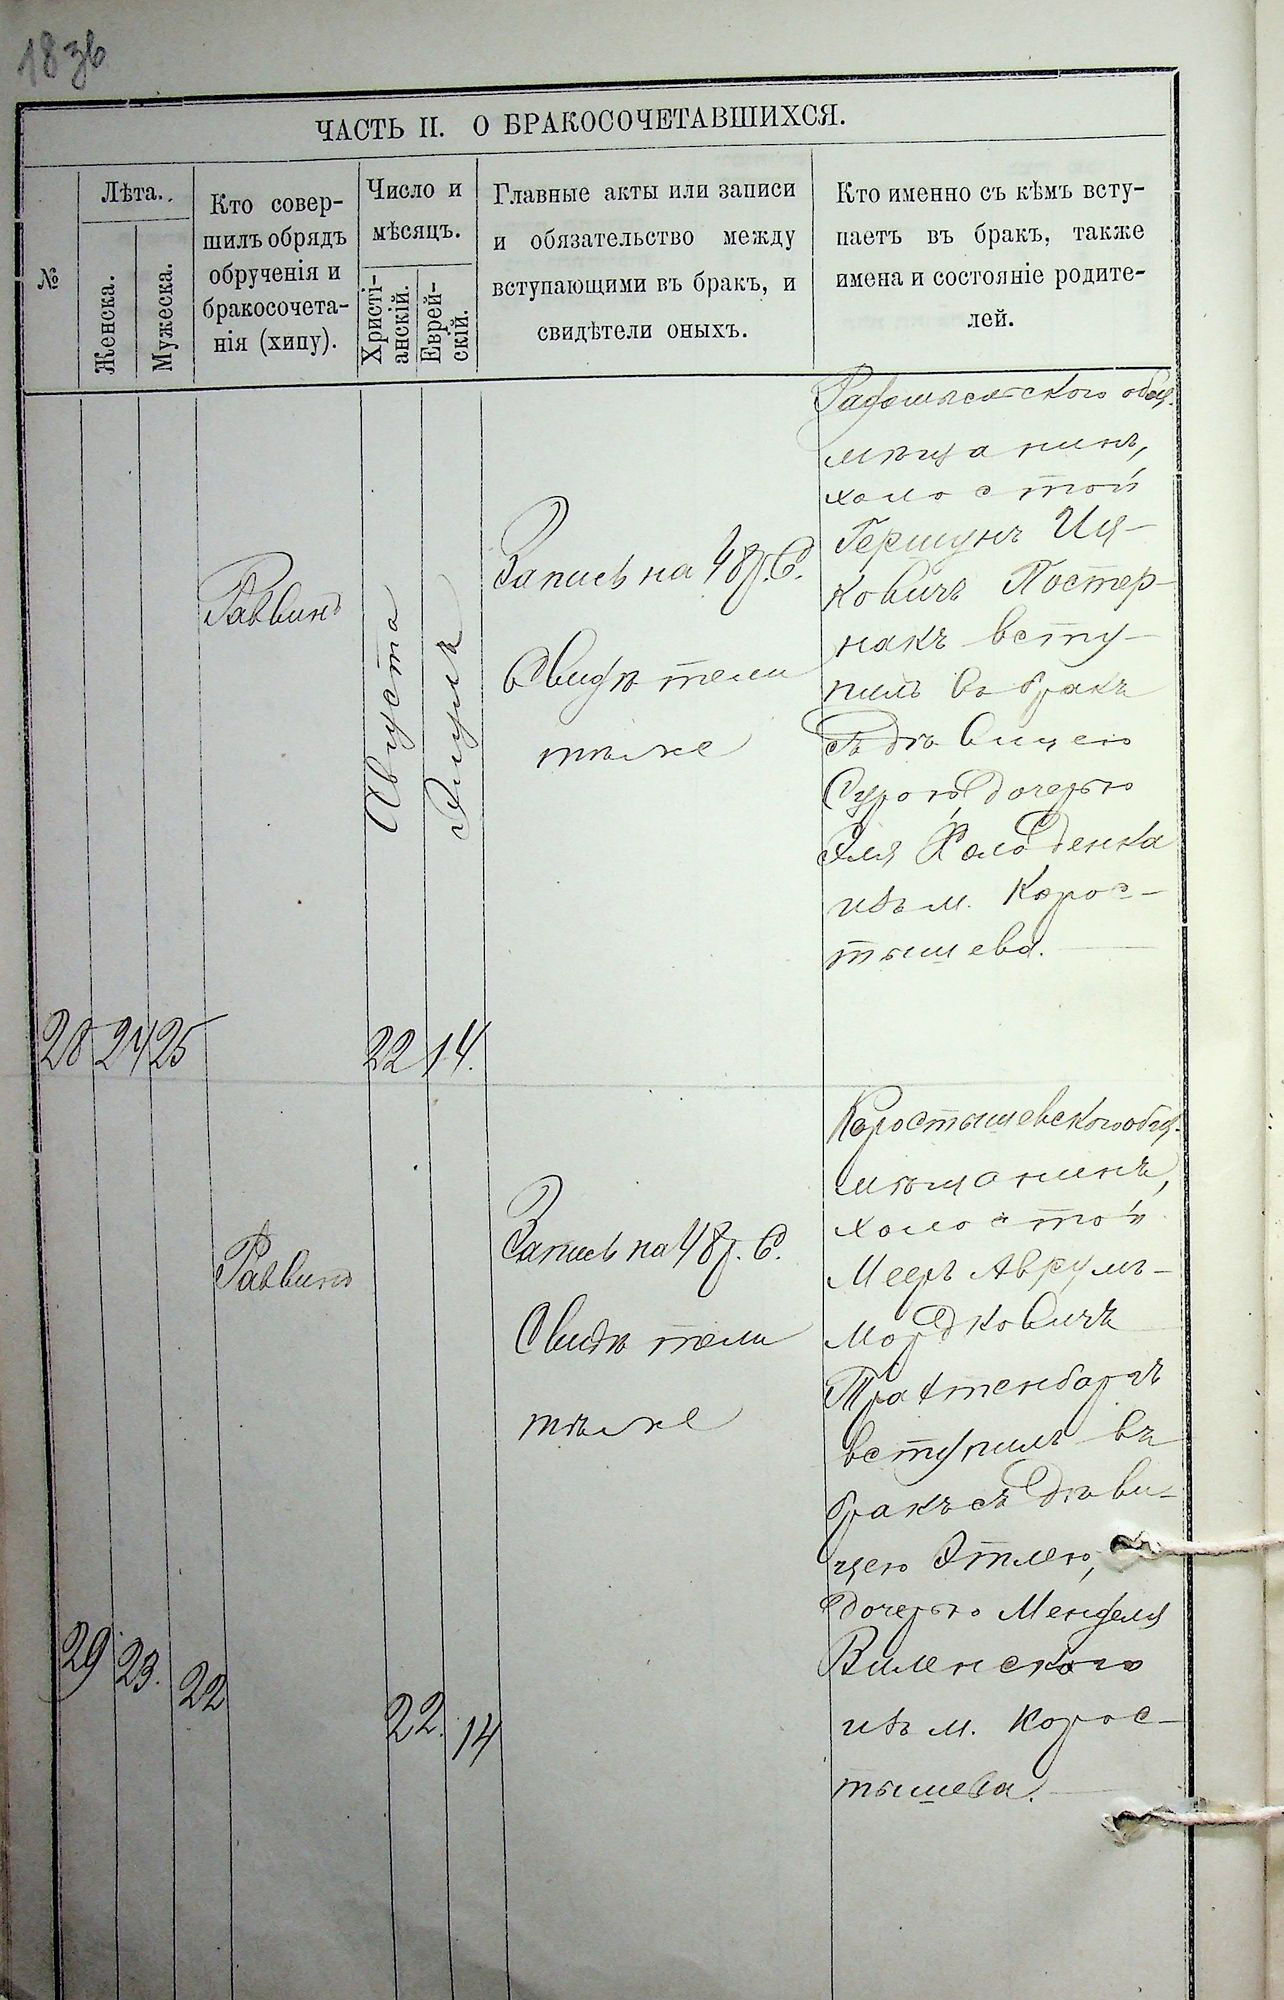 183б
ЧАСТЬ II. О БРАКОСОЧЕТАВШИХСЯ.
№
Лѣта.
Женска.
Мужеска.
Кто совер-
шилъ обрядъ
обрученія и
бракосочета-
нія (хипу).
Число и
мѣсяцъ.
Христі-
анскій.
Еврей-
скій.
Главные акты или записи
и обязательство между
вступающими въ бракъ, и
свидѣтели оныхъ.
Кто именно съ кѣмъ всту-
паетъ въ бракъ, также
имена и состояніе родите-
лей.
28
24
25
Раввинъ
Августа
22
Элулъ
14.
Запись на 48 р. С.
Свидѣтели
тѣже
Радомысльского общ.
мѣщанинъ,
холостой
Гершунъ Иц-
ковичъ Постер-
накъ всту-
пилъ въ бракъ
съ дѣвицею
Сурою, дочерью
Эля Холоденка
изъ м. Корос-
тышева.
29
23.
22
Раввинъ
22.
14
Запись на 48 р. С.
Свидѣтели
тѣже
Коростышевского общ.
мѣщанинъ,
холостой
Мееръ Аврумъ-
Мордковичъ
Трахтенбаргъ
вступилъ въ
бракъ съ дѣви-
цею Этлею,
дочерью Менделя
Виленского
изъ м. Корос-
тышева.